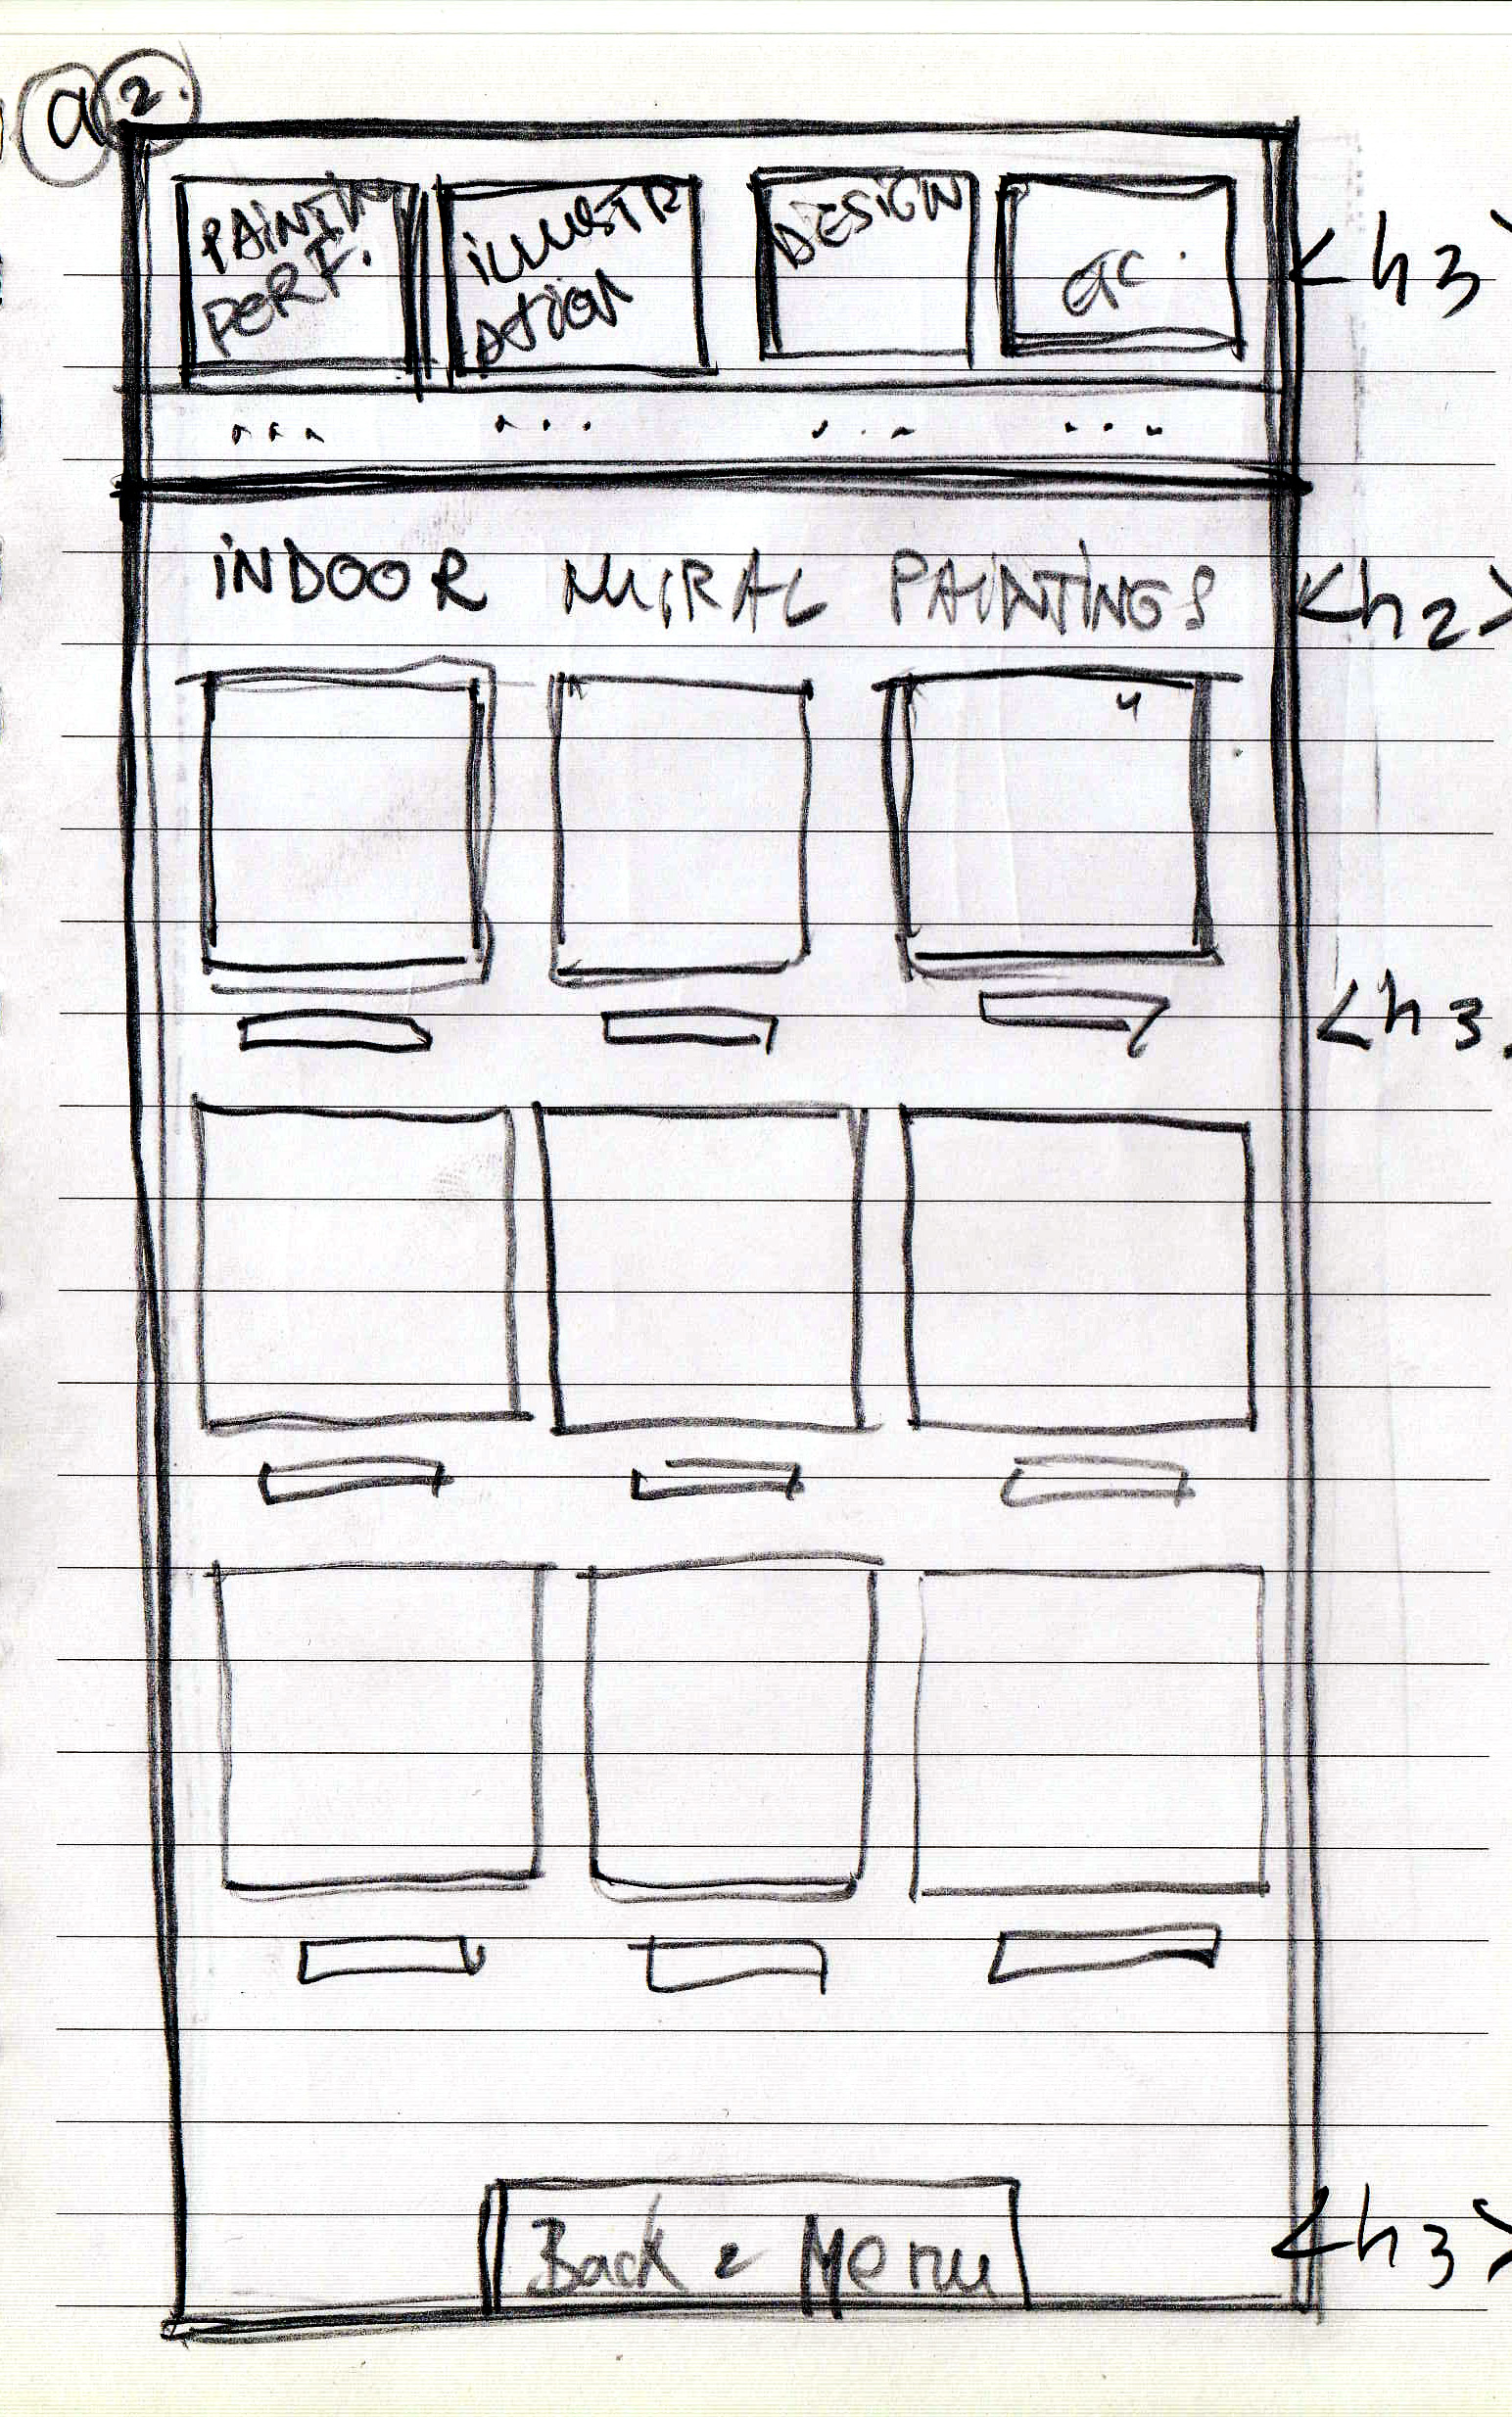 a 2.
PAINTIN
PERF.
ILLUSTR
ATION
DESIGN
ETC.
<h3>
... ... ... ...
INDOOR MURAL PAINTINGS
<h2>
<h3.
Back 2 Menu
<h3>